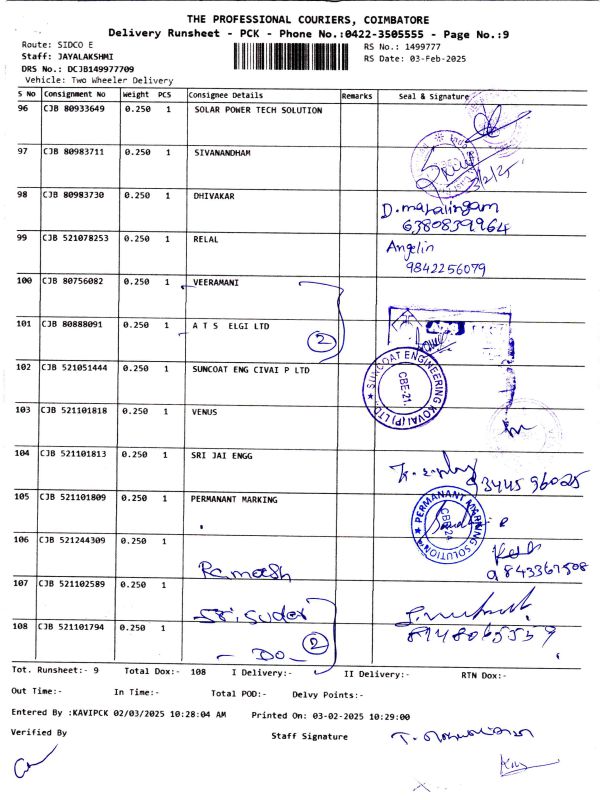 THE PROFESSIONAL COURIERS, COIMBATORE
Delivery Runsheet - PCK - Phone No.:0422-3505555 - Page No.:9
Route: SIDCO E
RS No.: 1499777
Staff: JAYALAKSHMI
RS Date: 03-Feb-2025
DRS No.: DCJB149977709
Vehicle: Two Wheeler Delivery
S No Consignment No Weight PCS Consignee Details Remarks Seal & Signature
96 CJB 80933649 0.250 1 SOLAR POWER TECH SOLUTION
97 CJB 80983711 0.250 1 SIVANANDHAM
3/2/25
98 CJB 80983730 0.250 1 DHIVAKAR
D. mahalingam
6380839964
99 CJB 521078253 0.250 1 RELAL
Angelin
9842256079
100 CJB 80756082 0.250 1 VEERAMANI
101 CJB 80888091 0.250 1 A T S ELGI LTD
2
102 CJB 521051444 0.250 1 SUNCOAT ENG CIVAI P LTD
SUNCOAT ENGINEERING KOVAI (P) LTD.
CBE-21.
103 CJB 521101818 0.250 1 VENUS
104 CJB 521101813 0.250 1 SRI JAI ENGG
105 CJB 521101809 0.250 1 PERMANANT MARKING
PERMANANT MARKING SOLUTION
CBE-24
106 CJB 521244309 0.250 1
Ramesh
9843367508
107 CJB 521102589 0.250 1
Sri. Suder
108 CJB 521101794 0.250 1
- DO -
2
8148065559
Tot. Runsheet:- 9 Total Dox:- 108 I Delivery:- II Delivery:- RTN Dox:-
Out Time:- In Time:- Total POD:- Delvy Points:-
Entered By :KAVIPCK 02/03/2025 10:28:04 AM Printed On: 03-02-2025 10:29:00
Verified By Staff Signature